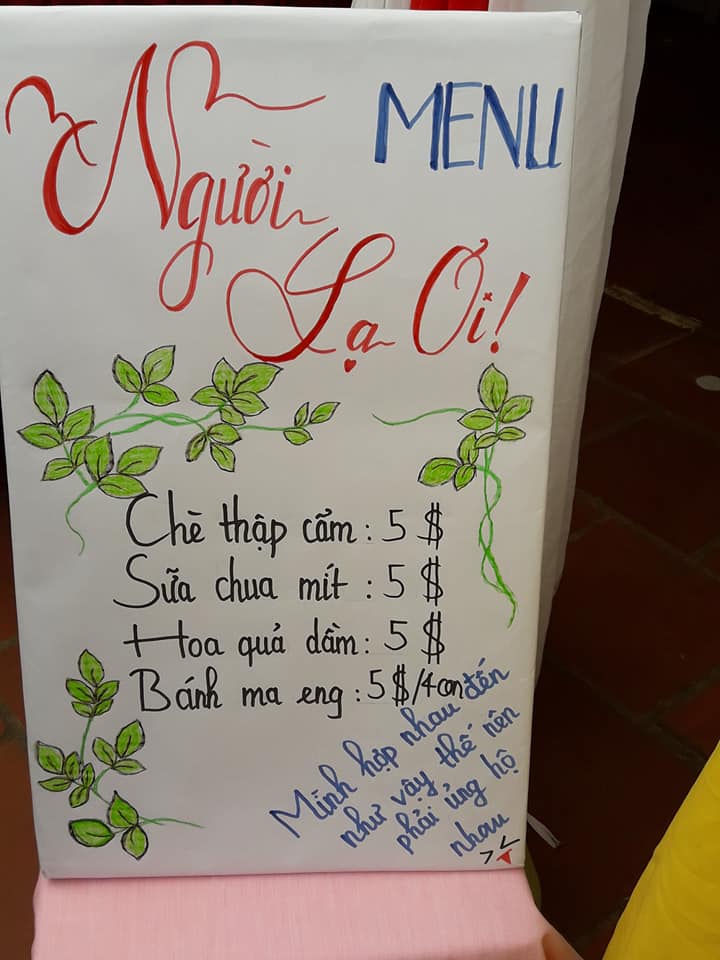 MENU
Người
Lạ Ơi!
Chè thập cẩm: 5 $
Sữa chua mít : 5 $
Hoa quả dầm: 5 $
Bánh ma eng : 5 $/4 con
Mình hợp nhau đến
như vậy thế nên
phải ủng hộ
nhau